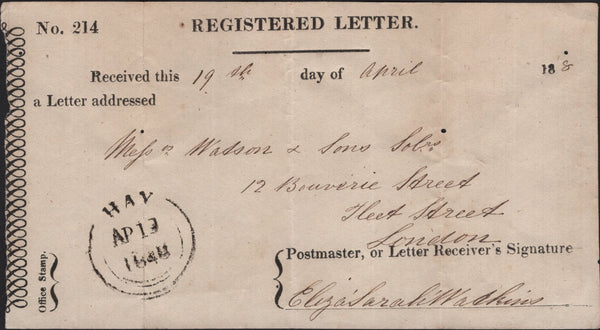 No. 214 REGISTERED LETTER.
Received this 19th day of April 18 8
a Letter addressed
Messrs Watson & Sons Solrs
12 Bouverie Street
Fleet Street
London
HAY
AP 19
1848
Office Stamp.
Postmaster, or Letter Receiver's Signature
Eliza Sarah Watkins